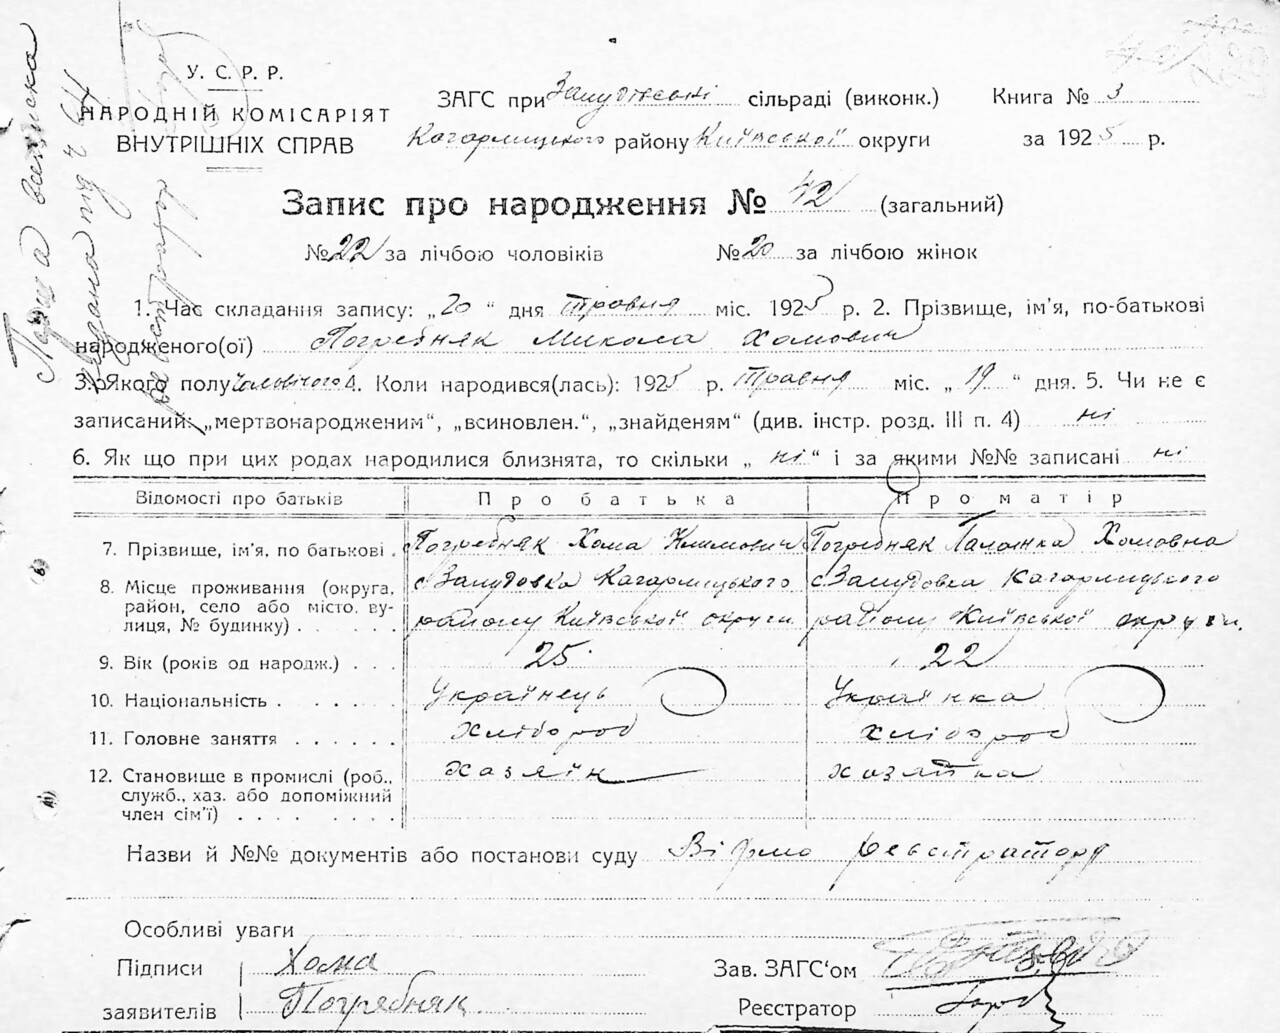 У. С. Р. Р.
НАРОДНІЙ КОМІСАРІЯТ
ВНУТРІШНІХ СПРАВ
ЗАГС при сільраді (виконк.)
Кагарлицького району Київської округи
Книга № 3
за 1925 р.
Запис про народження № 42 (загальний)
№ 22 за лічбою чоловіків № 20 за лічбою жінок
1. Час складання запису: „20“ дня травня міс. 1925 р. 2. Прізвище, ім'я, по-батькові
народженого(ої) Погребняк Микола Хомович
3. Якого полу чоловічого 4. Коли народився(лась): 1925 р. травня міс. „19“ дня. 5. Чи не є
записаний: „мертвонародженим“, „всиновлен.“, „знайденям“ (див. інстр. розд. III п. 4) ні
6. Як що при цих родах народилися близнята, то скільки „ні“ і за якими №№ записані ні
Відомості про батьків Про батька Про матір
7. Прізвище, ім'я, по батькові . Погребняк Хома Климович Погребняк Хомовна
8. Місце проживання (округа, район, село або місто, вулиця, № будинку) . . . . .
Кагарлицького
району Київської округи
Кагарлицького
району Київської округи.
9. Вік (років од народж.) . . . 25 22
10. Національність . . . . . Українець Українка
11. Головне заняття . . . . . . хлібороб хлібороб
12. Становище в промислі (роб., служб., хаз. або допоміжний член сім'ї) . . . . . . . . хазяїн хазяйка
Назви й №№ документів або постанови суду
Особливі уваги
Підписи Хома
заявителів Погрябняк
Зав. ЗАГС‘ом
Реєстратор